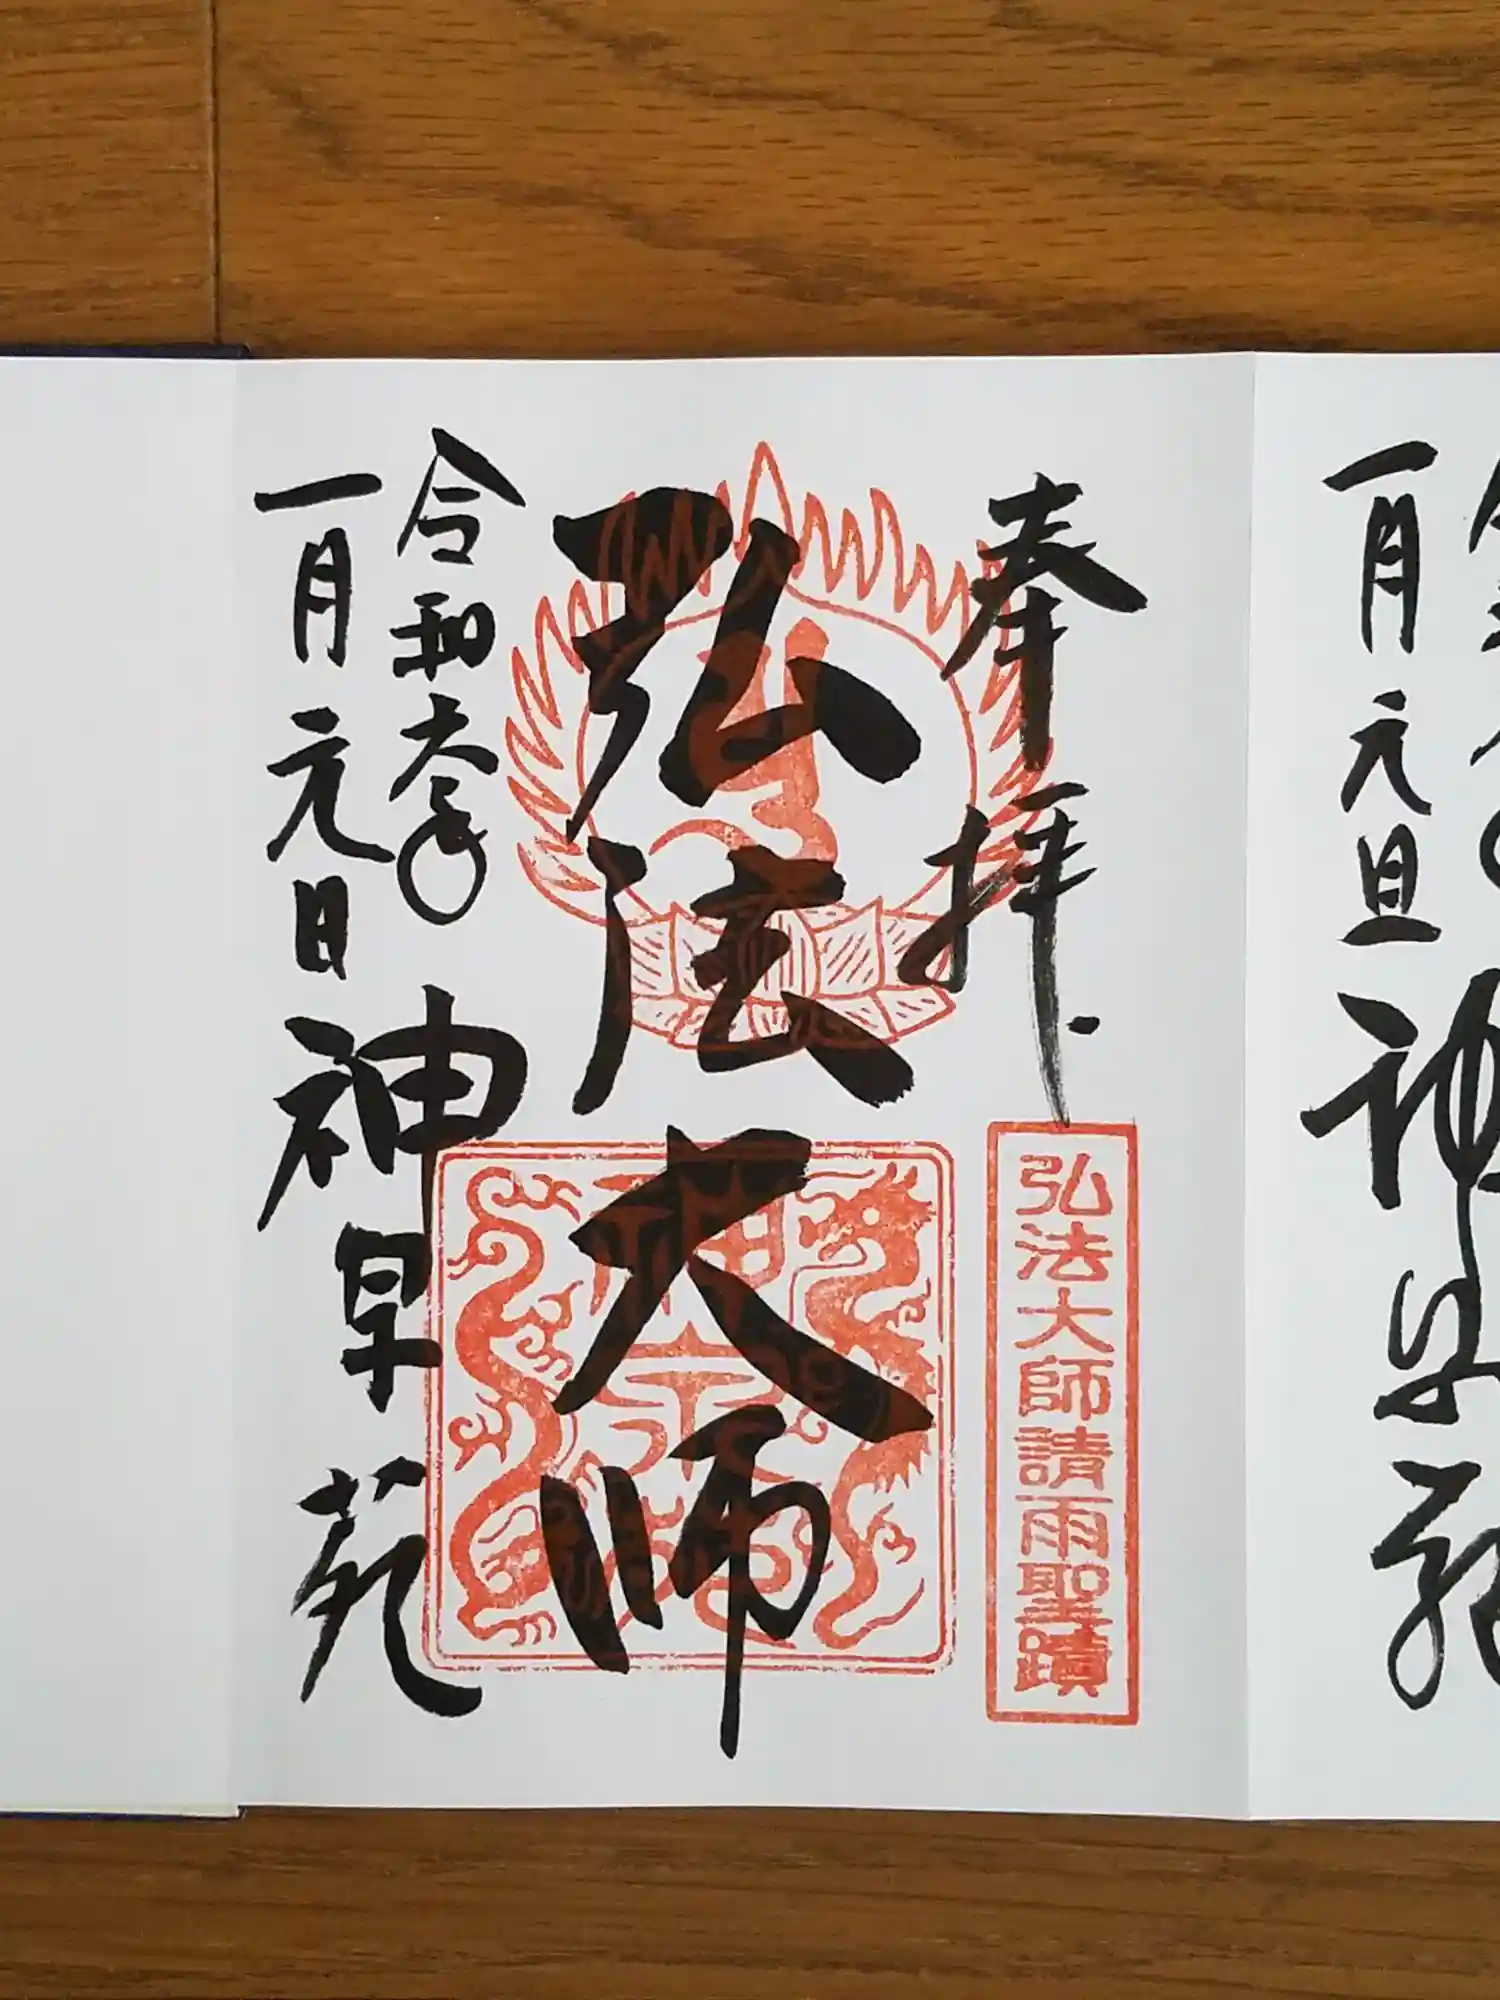 一月元旦
奉拝
弘法大師請雨聖蹟
弘法大師
令和六年
一月元日
神泉苑